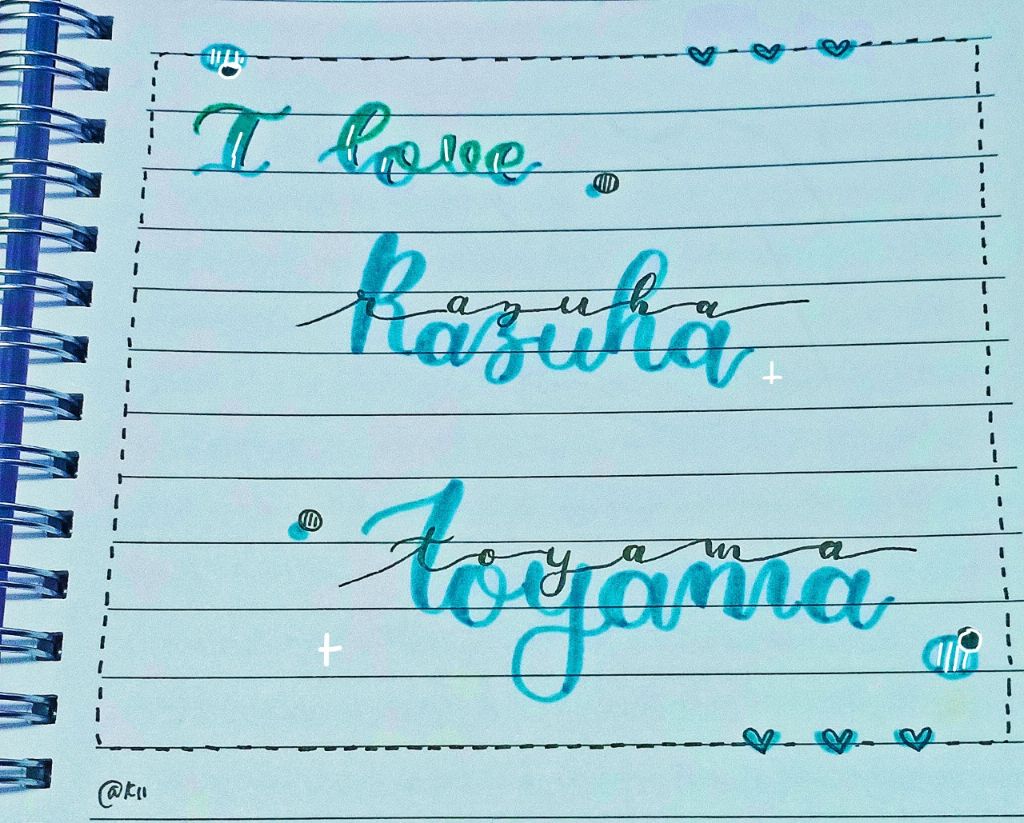 I love
Kazuha
kazuha
Toyama
toyama
@Kii